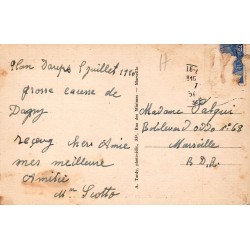 Plan Daups 5 juillet 19
grosse causse de
Dagny
reçevez chère Amie
mes meilleure
Amitié
Mme Scotto
A. Tardy, photo-édit., 107, Rue des Minimes - Marseille
H
Madame Falqui
Boblevard Oddo n° 68
Marseille
B. D. R.